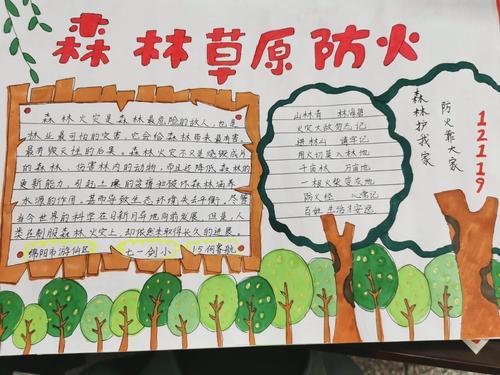 森林草原防火
森林火灾是森林最危险的敌人，也是
林业最可怕的灾害，它会给森林带来最有害，
最有毁灭性的后果。森林火灾不只是烧毁成片
的森林，伤害林内的动物，而且还降低森林的
更新能力，引起土壤的贫瘠和破坏森林涵养
水源的作用，甚而导致生态环境失去平衡。尽管
当今世界的科学在日新月异地向前发展，但是，人
类在制服森林火灾上，却依然未取得长久的进展。
绵阳市游仙区 七一剑小
山林青 林海县
火灾大敌勿忘记
进林山 请字记
用火切莫入林地
千亩林 万亩地
一根火柴变灰地
防火经 心常记
百姓生活才安逸
森林护我家
防火靠大家
12119